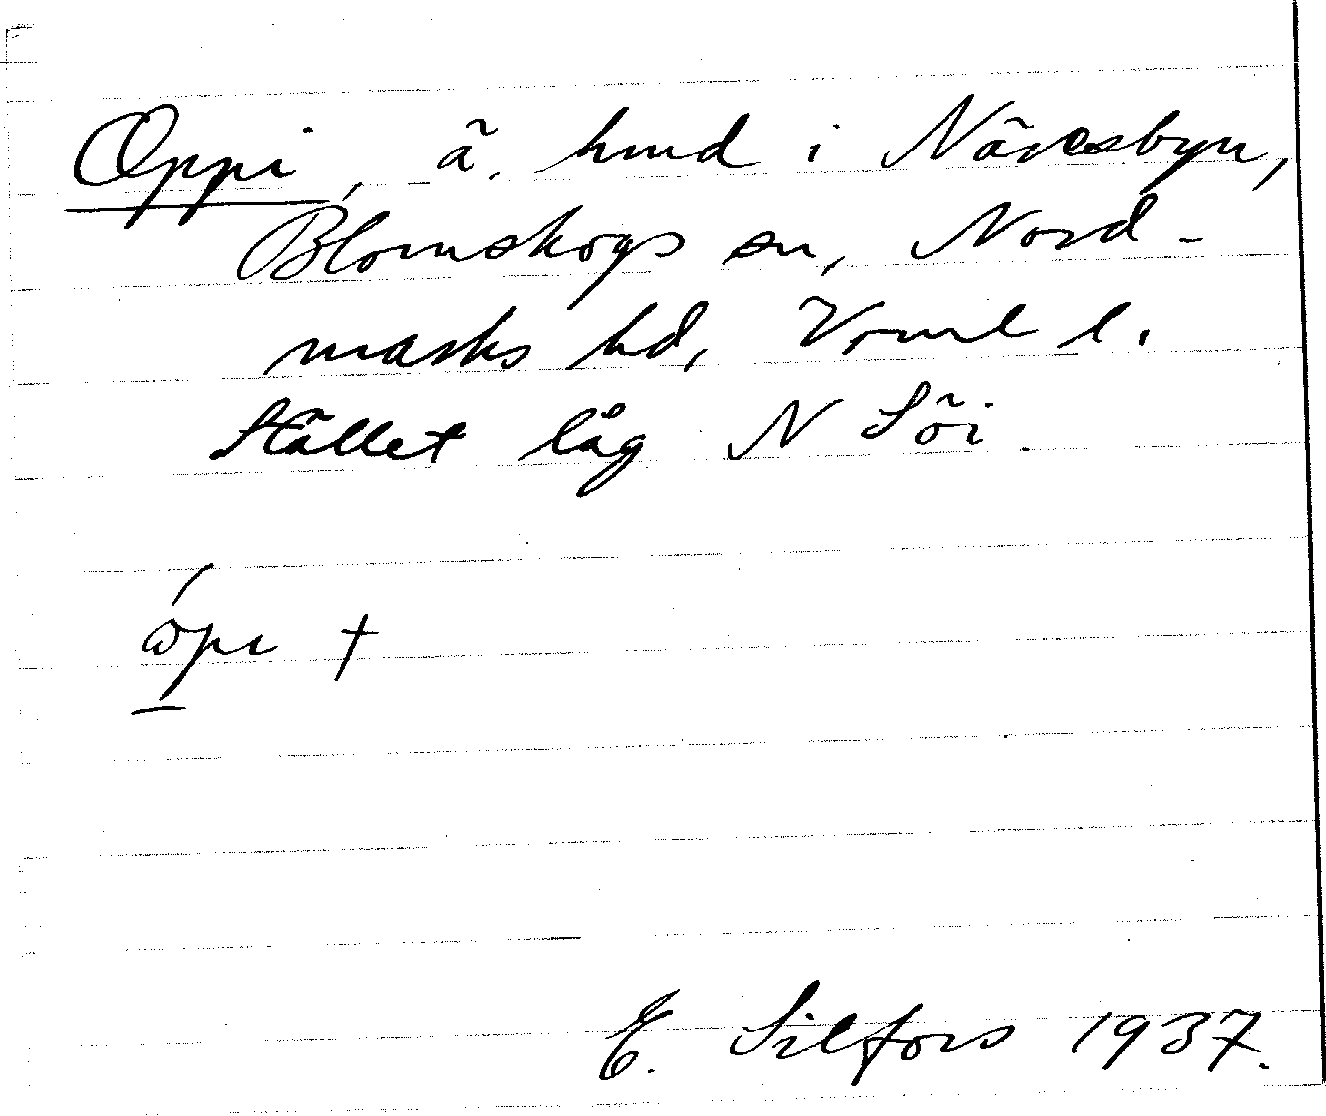 Oppi, ä. hmd i Nävesbyn,
Blomskogs sn, Nord-
marks hd, Vrml l.
Stället låg N Söi.
òpı †
E. Silfors 1937.